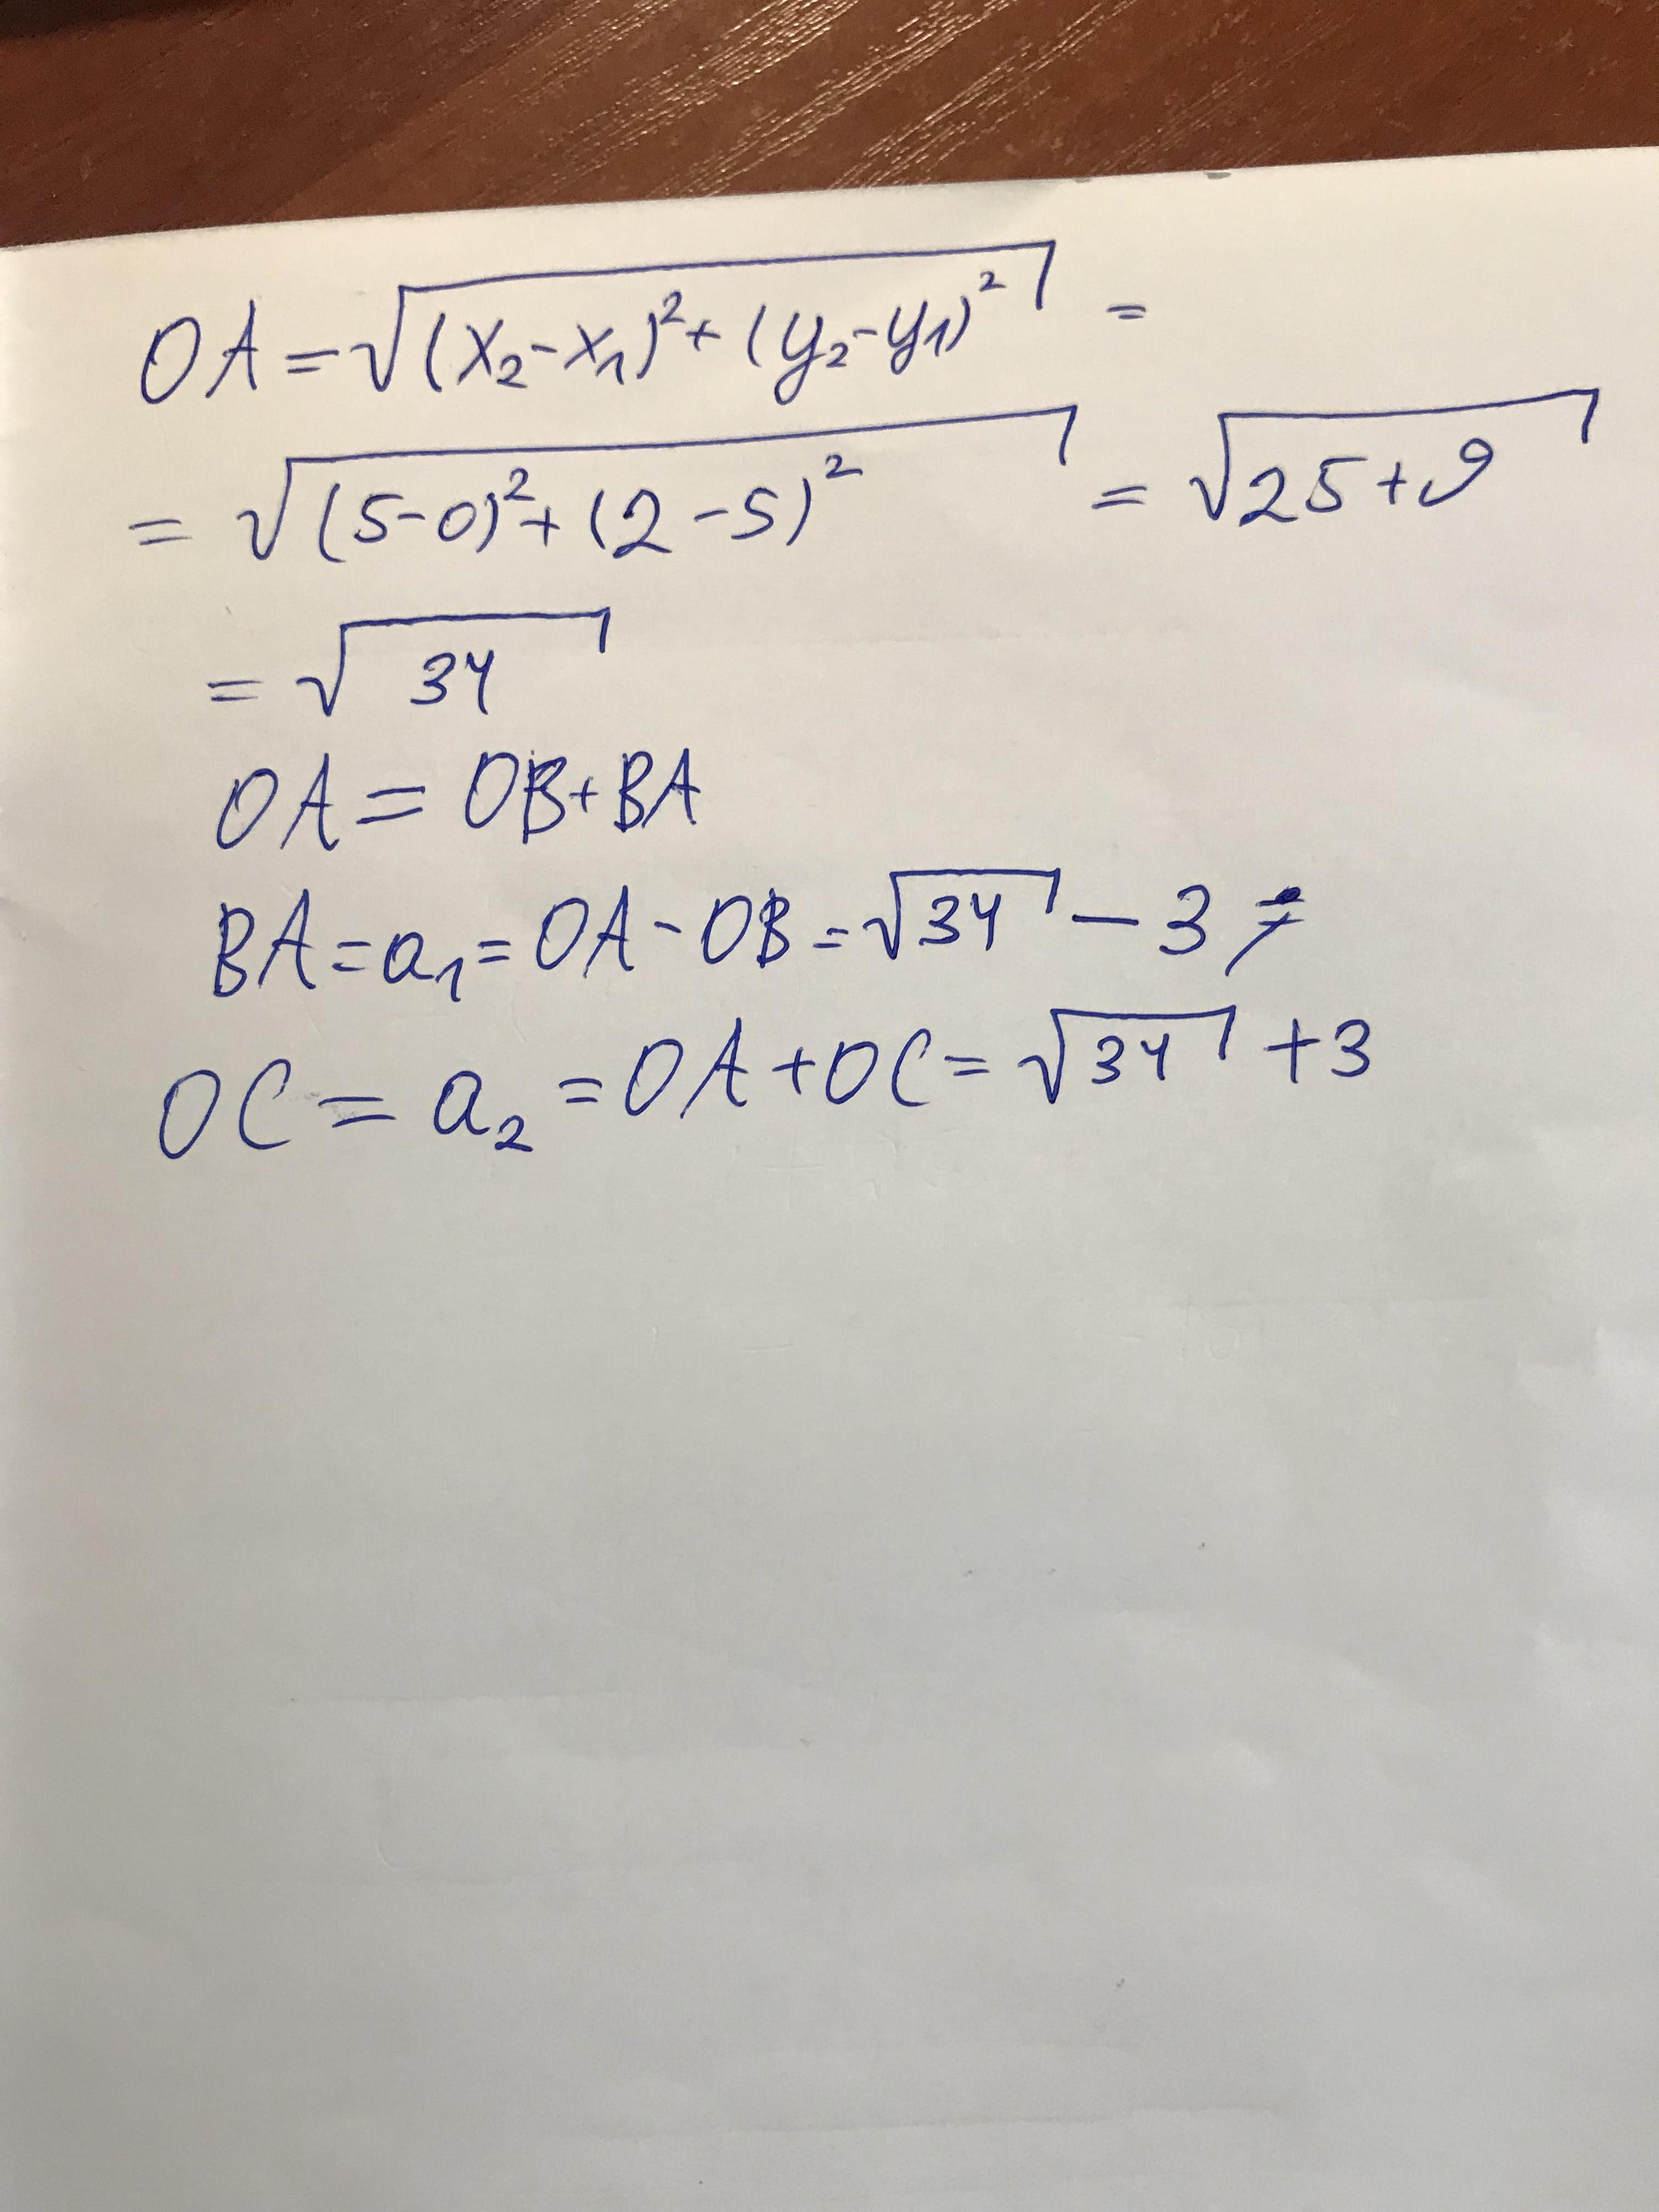 OA = √(x₂-x₁)²+(y₂-y₁)² =
= √(5-0)²+(2-5)² = √25+9
= √34
OA = OB+BA
BA = a₁ = OA-OB = √34 - 3 ;
OC = a₂ = OA+OC = √34 +3